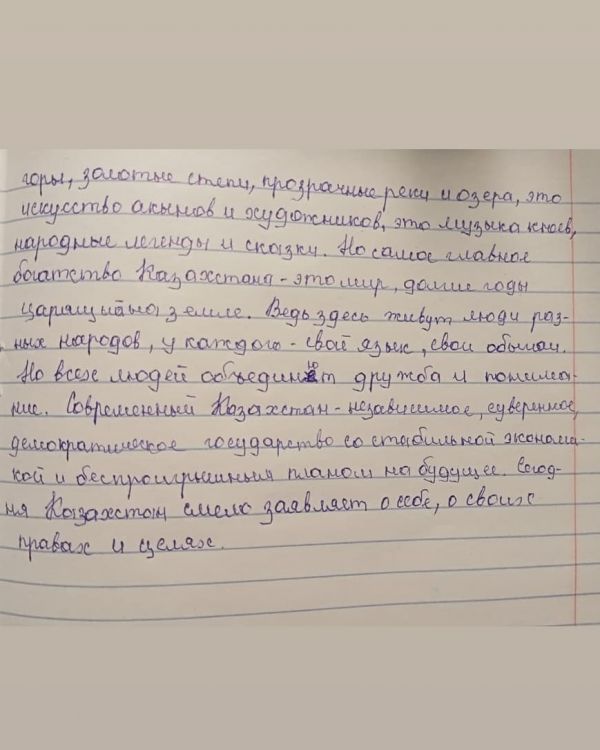 горы, золотые степи, прозрачные реки и озера, это
искусство акынов и художников, это музыка кюев,
народные легенды и сказки. Но самое главное
богатство Казахстана - это мир, долгие годы
царящий на земле. Ведь здесь живут люди раз-
ных народов, у каждого - свой язык, свои обычаи.
Но всех людей объединяют дружба и понима-
ние. Современный Казахстан - независимое, суверенное,
демократическое государство со стабильной экономи-
кой и беспроигрышным планом на будущее. Сегод-
ня Казахстан смело заявляет о себе, о своих
правах и целях.